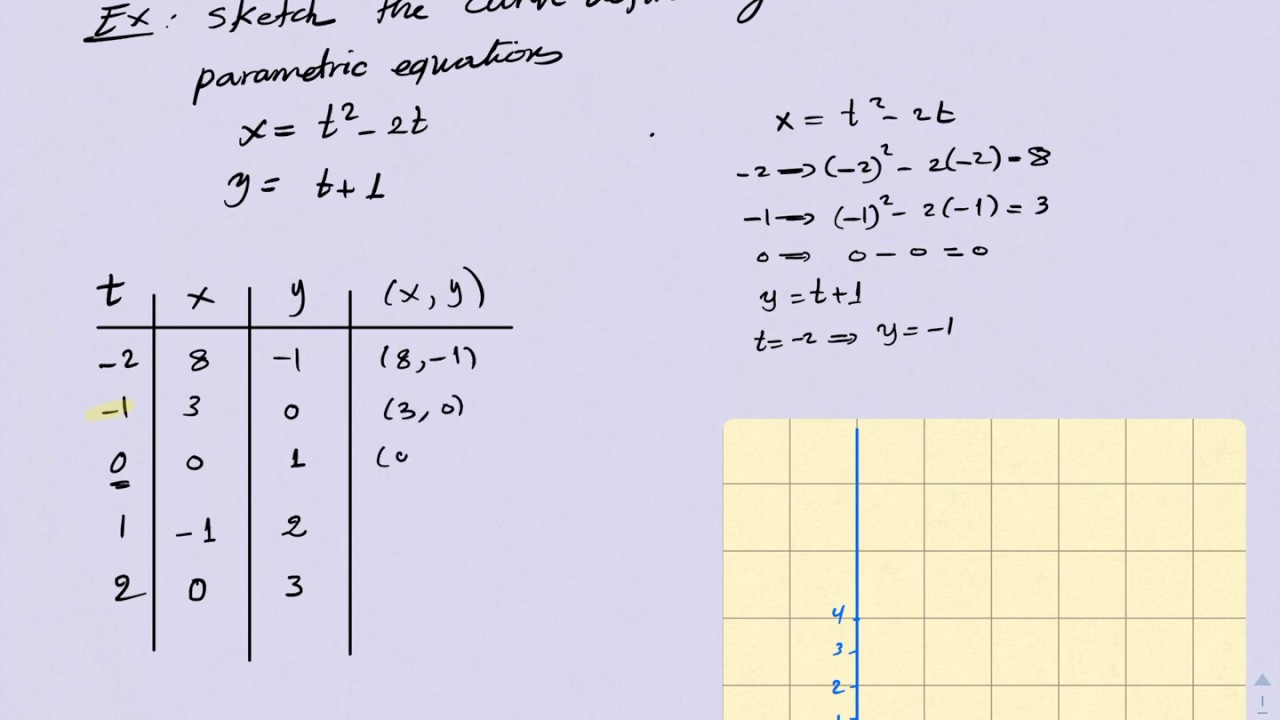 Ex: sketch the
parametric equations
x = t² - 2t
y = t + 1
x = t² - 2t
-2 → (-2)² - 2(-2) = 8
-1 → (-1)² - 2(-1) = 3
0 ⇒ 0 - 0 = 0
y = t + 1
t = -2 ⇒ y = -1
t x y (x, y)
-2 8 -1 (8, -1)
-1 3 0 (3, 0)
0 0 1 (0
1 -1 2
2 0 3
4
3
2